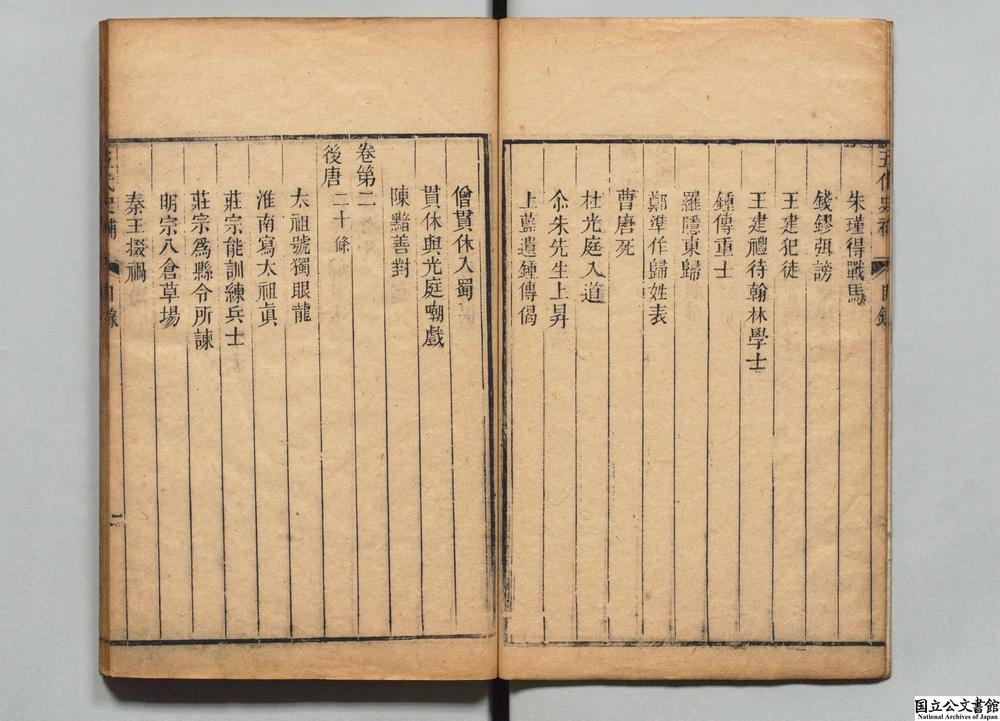 五代史補 目錄
朱瑾得戰馬
錢鏐弭謗
王建犯徒
王建禮待翰林學士
鍾傳重士
羅隱東歸
鄭準作歸姓表
曹唐死
杜光庭入道
尒朱先生上昇
上藍遺鍾傳偈
僧貫休入蜀
貫休與光庭嘲戲
陳黯善對
卷第二
後唐 二十條
太祖號獨眼龍
淮南寫太祖真
莊宗能訓練兵士
莊宗為縣令所諫
明宗入倉草場
秦王掇禍
五代史補 目錄 二
国立公文書館
National Archives of Japan